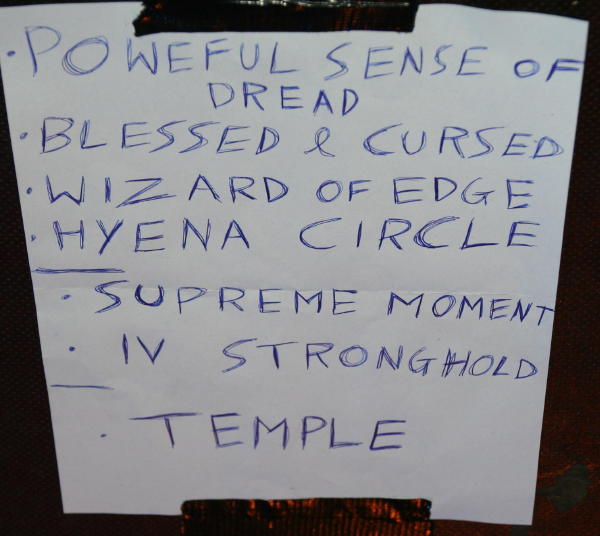 · POWEFUL SENSE OF
DREAD
· BLESSED & CURSED
· WIZARD OF EDGE
· HYENA CIRCLE
· SUPREME MOMENT
· IV STRONGHOLD
· TEMPLE